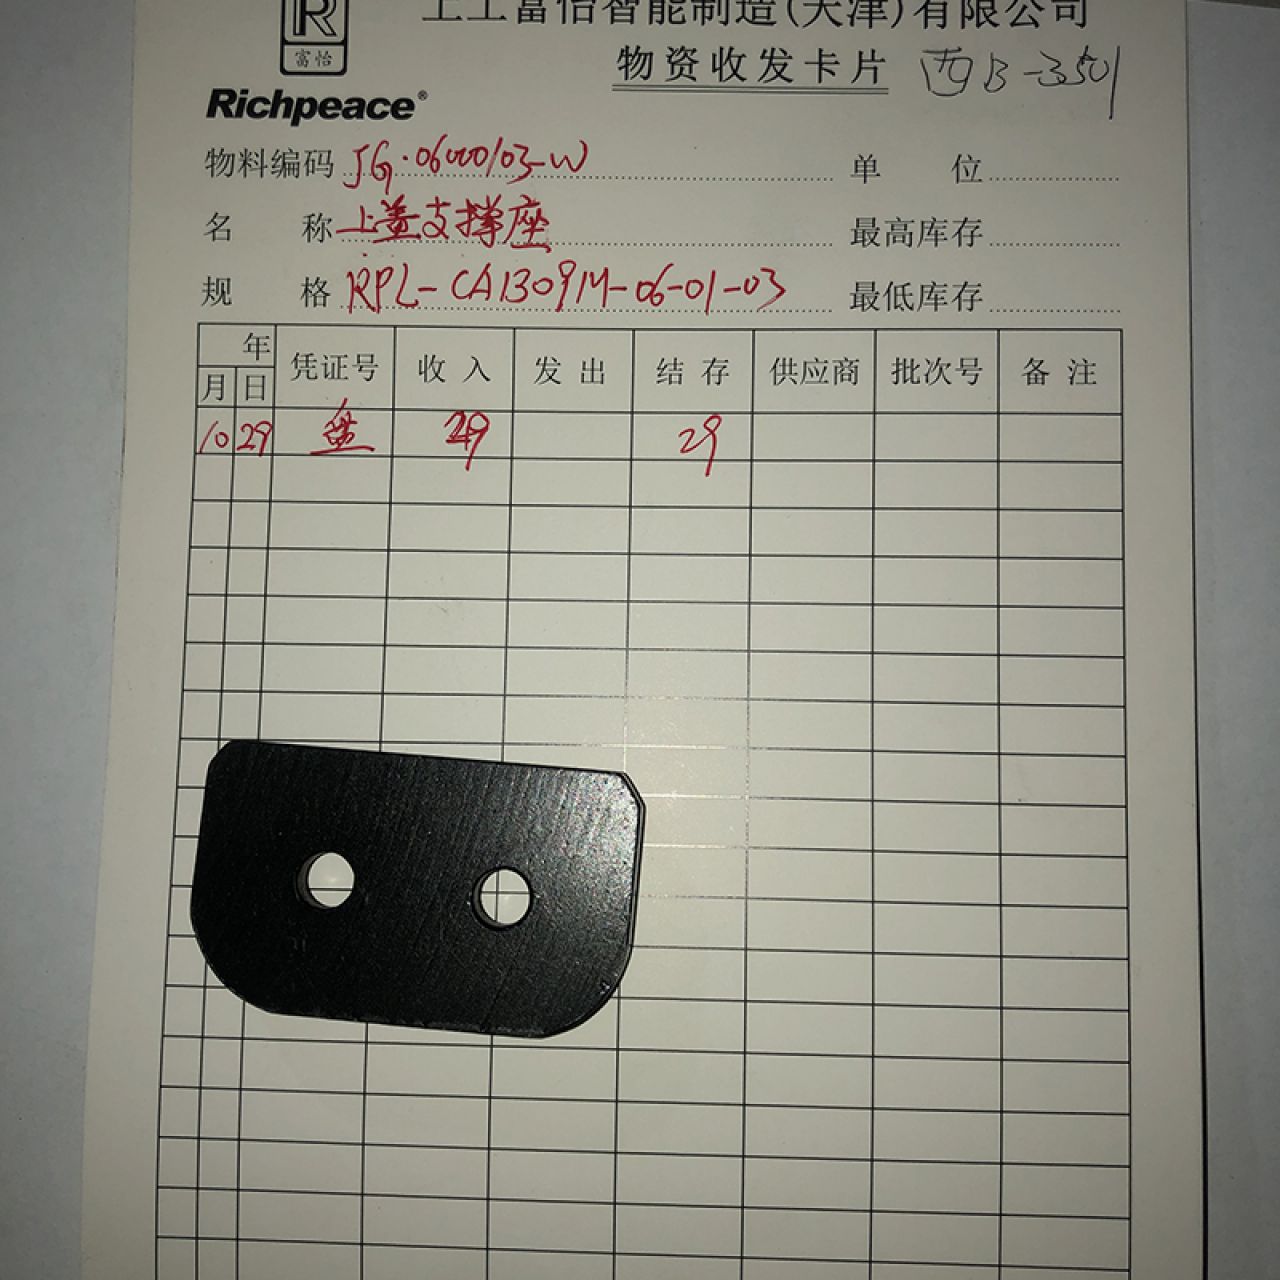 R
富怡
上工富怡智能制造(天津)有限公司
物资收发卡片 西B-3501
Richpeace®
物料编码 JG.06000103-W 单 位
名 称 上盖支撑座 最高库存
规 格 RPL-CA1309M-06-01-03 最低库存
年 凭证号 收入 发出 结存 供应商 批次号 备注
月 日
10 29 盘 29 29